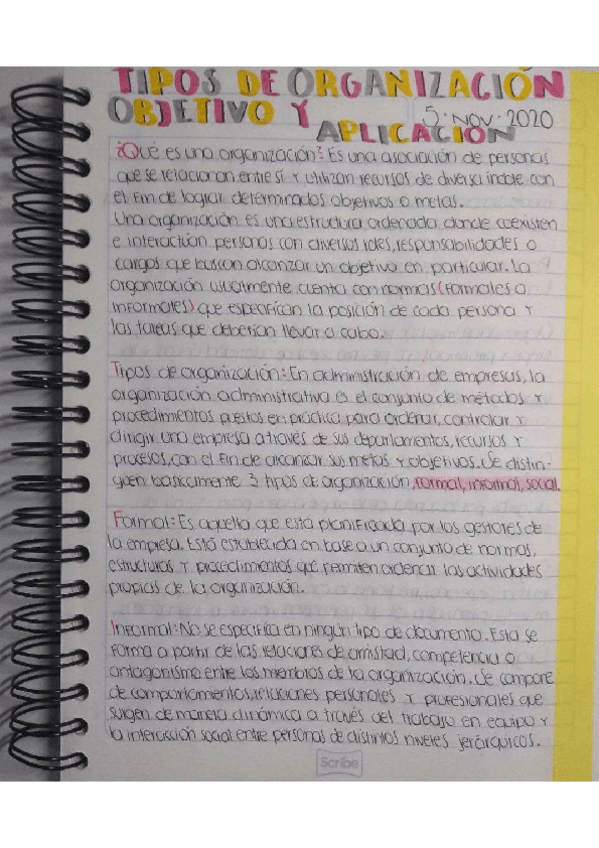 TIPOS DE ORGANIZACIÓN
OBJETIVO Y
5·NOV·2020
APLICACIÓN
¿Qué es una organización? Es una asociación de personas
que se relacionan entre sí y utilizan recursos de diversa índole con
el fin de lograr determinados objetivos o metas.
Una organización es una estructura ordenada donde coexisten
e interactúan personas con diversos roles, responsabilidades o
cargos que buscan alcanzar un objetivo en particular. La
organización usualmente cuenta con normas (formales o
informales) que especifican la posición de cada persona y
las tareas que deberían llevar a cabo.
Tipos de organización: En administración de empresas, la
organización administrativa es el conjunto de métodos y
procedimientos puestos en práctica para ordenar, controlar y
dirigir una empresa a través de sus departamentos, recursos y
procesos, con el fin de alcanzar sus metas y objetivos. Se distin-
guen basicamente 3 tipos de organización, formal, informal, social.
Formal: Es aquella que está planificada por los gestores de
la empresa. Está establecida en base a un conjunto de normas,
estructuras y procedimientos que permiten ordenar las actividades
propias de la organización.
Informal: No se especifica en ningún tipo de documento. Esta se
forma a partir de las relaciones de amistad, competencia o
antagonismo entre los miembros de la organización. Se compone
de comportamientos, relaciones personales y profesionales que
surgen de manera dinámica a través del trabajo en equipo y
la interacción social entre personas de distintos niveles jerárquicos.
Scribe